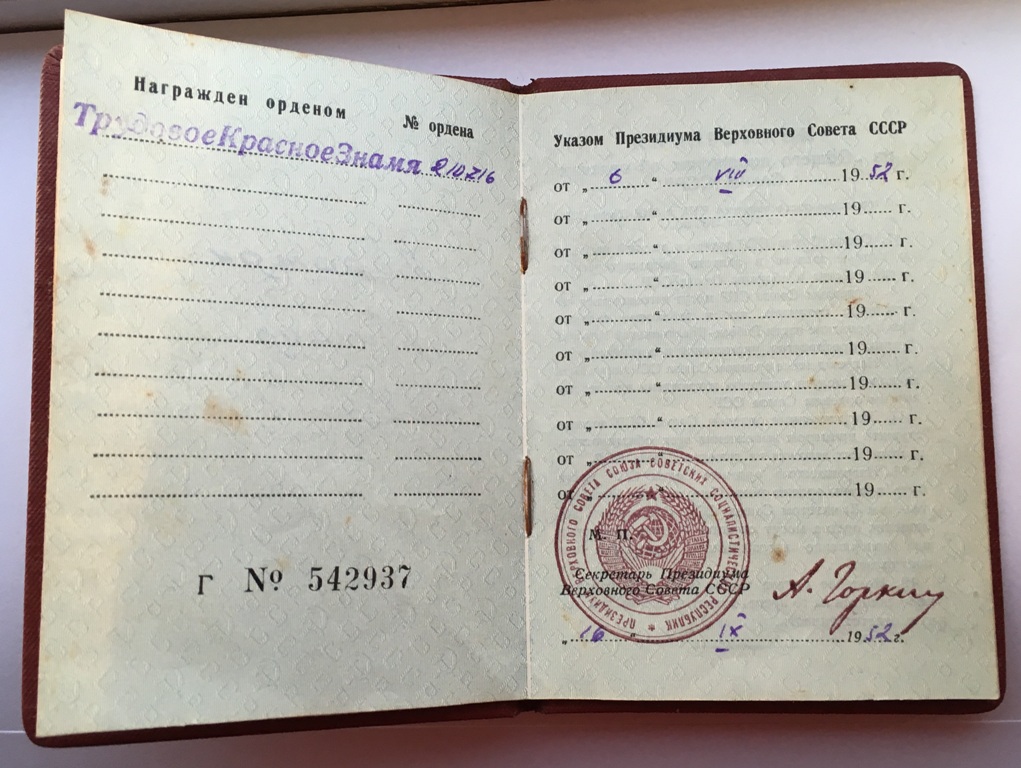 Награжден орденом № ордена
ТрудовоеКрасноеЗнамя 210716
Г № 542937
Указом Президиума Верховного Совета СССР
от „ 6 “ VIII 1952 г.
от „ “ 19 г.
от „ “ 19 г.
от „ “ 19 г.
от „ “ 19 г.
от „ “ 19 г.
от „ “ 19 г.
от „ “ 19 г.
от „ “ 19 г.
от „ “ 19 г.
М. П.
ПРЕЗИДИУМ ВЕРХОВНОГО СОВЕТА СОЮЗА СОВЕТСКИХ СОЦИАЛИСТИЧЕСКИХ РЕСПУБЛИК
Секретарь Президиума
Верховного Совета СССР
А. Горкин
„ 16 “ IX 1952 г.